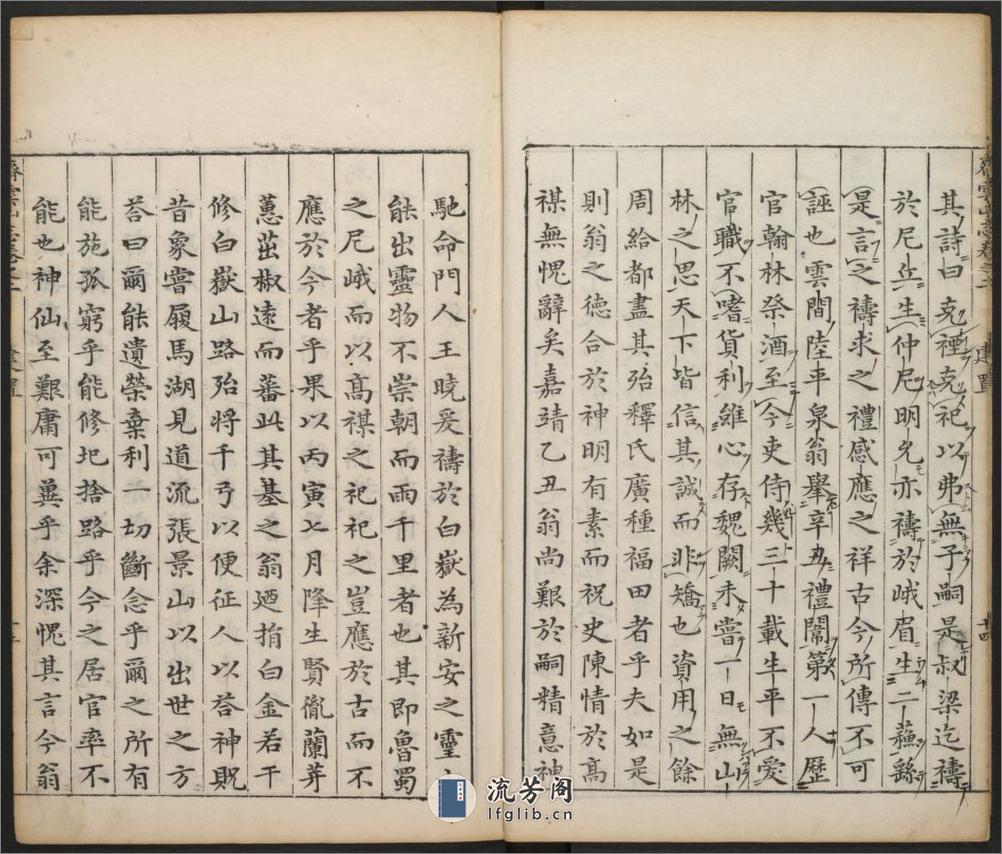 齊雲山志卷之二
建置
十四
其詩曰克禋克祀以弗無子嗣是叔梁迄禱
於尼丘生仲尼明允亦禱於峨眉生二蘇繇
是言之禱求之禮感應之祥古今所傳不可
誣也雲間陸平泉翁舉辛丑禮闈第一人歷
官翰林祭酒至今吏侍幾三十載生平不愛
官職不嗜貨利雖心存魏闕未嘗一日無山
林之思天下皆信其誠而非矯也資用之餘
周給都盡其殆釋氏廣種福田者乎夫如是
則翁之德合於神明有素而祝史陳情於高
禖無愧辭矣嘉靖乙丑翁尚艱於嗣精意神
馳命門人王曉爰禱於白嶽為新安之靈
能出靈物不崇朝而雨千里者也其即魯蜀
之尼峨而以高禖之祀祀之豈應於古而不
應於今者乎果以丙寅七月降生賢胤蘭芽
蕙茁椒遠而蕃此其基之翁廼捐白金若干
修白嶽山路殆將千弓以便征人以荅神貺
昔象嘗履馬湖見道流張景山以出世之方
荅曰爾能遺榮棄利一切斷念乎爾之所有
能施孤窮乎能修圯捨路乎今之居官率不
能也神仙至艱庸可冀乎余深愧其言今翁
流芳阁
lfglib.cn